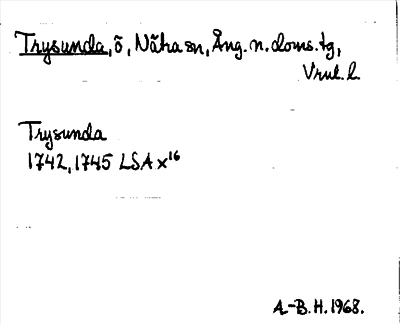 Trysunda, ö, Näha sn, Ång. n. doms. tg,
Vrul. l.
Trysunda
1742, 1745 LSA x16
A-B.H. 1968.